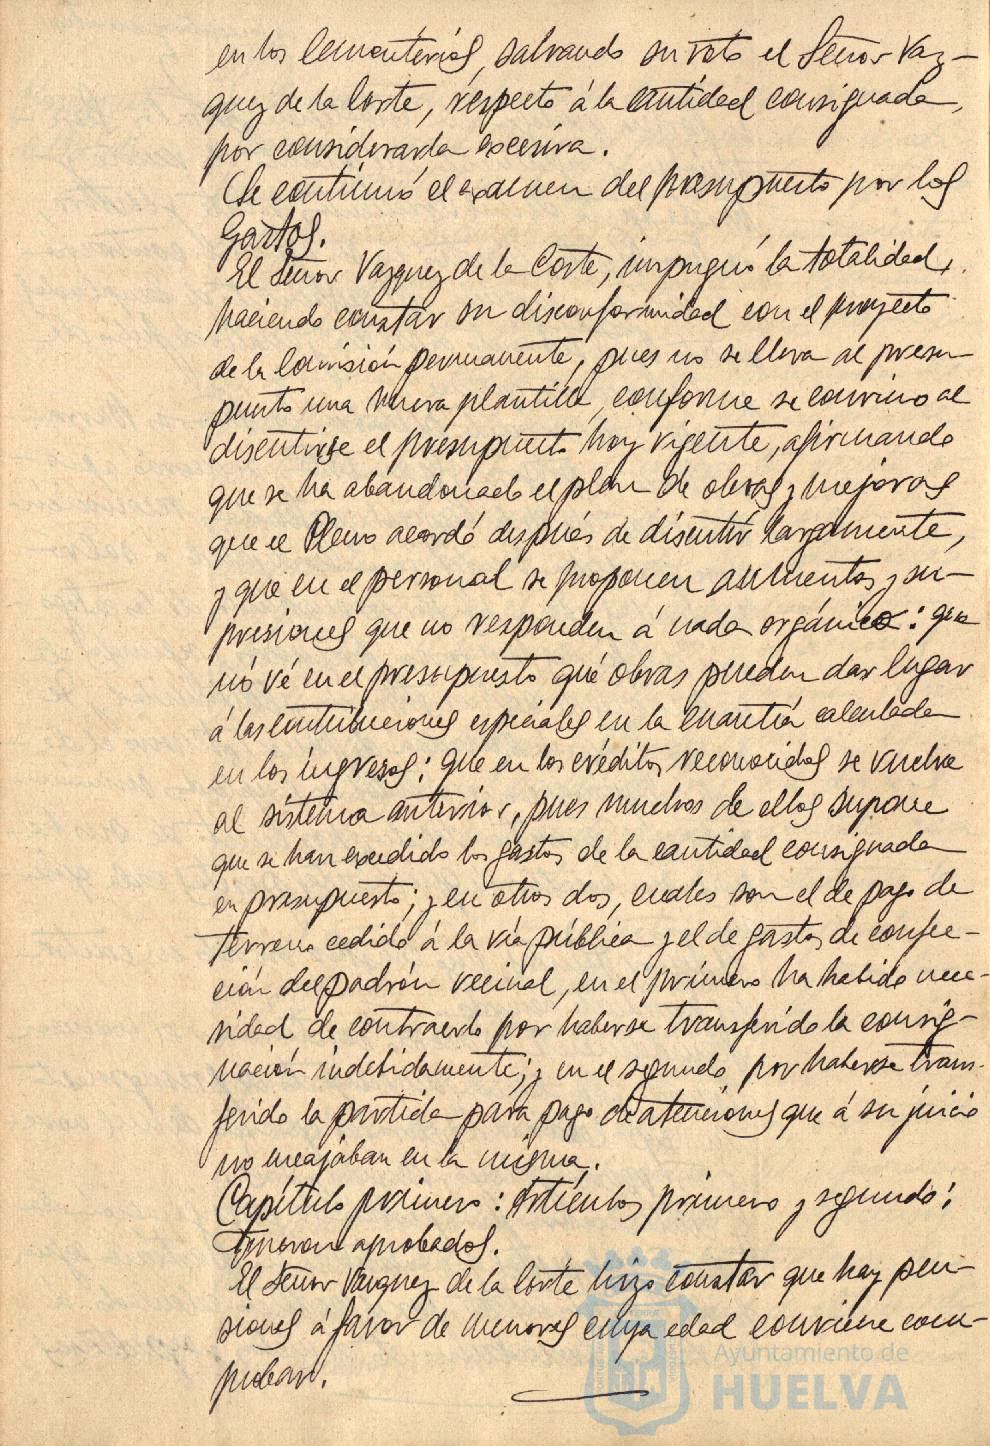 en los Cementerios, salvando su voto el Señor Vaz-
quez de la Corte, respecto á la cantidad consignada,
por considerarla excesiva.
Se continuó el examen del presupuesto por los
Gastos.
El Señor Vazquez de la Corte, impugnó la totalidad,
haciendo constar su disconformidad con el proyecto
de la Comisión permanente, pues no se lleva al presu-
puesto una nueva plantilla, conforme se convino al
discutirse el presupuesto hoy vigente, afirmando
que se ha abandonado el plan de obras y mejoras
que el Pleno acordó después de discutir largamente,
y que en el personal se proponen aumentos y su-
presiones que no responden á nada orgánico: que
nó vé en el presupuesto qué obras pueden dar lugar
á las contribuciones especiales en la cuantía calculada
en los ingresos; que en los créditos reconocidos se vuelve
al sistema anterior, pues muchos de ellos supone
que se han excedido los gastos de la cantidad consignada
en presupuesto; y en otros dos, cuales son el de pago de
terreno cedido á la vía pública y el de gastos de confec-
ción del padrón vecinal, en el primero ha habido nece-
sidad de contraerlo por haberse transferido la consig-
nación indebidamente; y en el segundo por haberse trans-
ferido la partida para pago de atenciones que á su juicio
no encajaban en la misma.
Capítulo primero: Artículos primero y segundo;
fueron aprobados.
El Señor Vazquez de la Corte hizo constar que hay pen-
siones á favor de menores cuya edad conviene com-
probar.
Ayuntamiento de
HUELVA